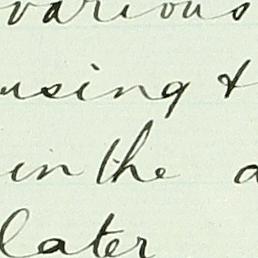 various
using &
in the a
later